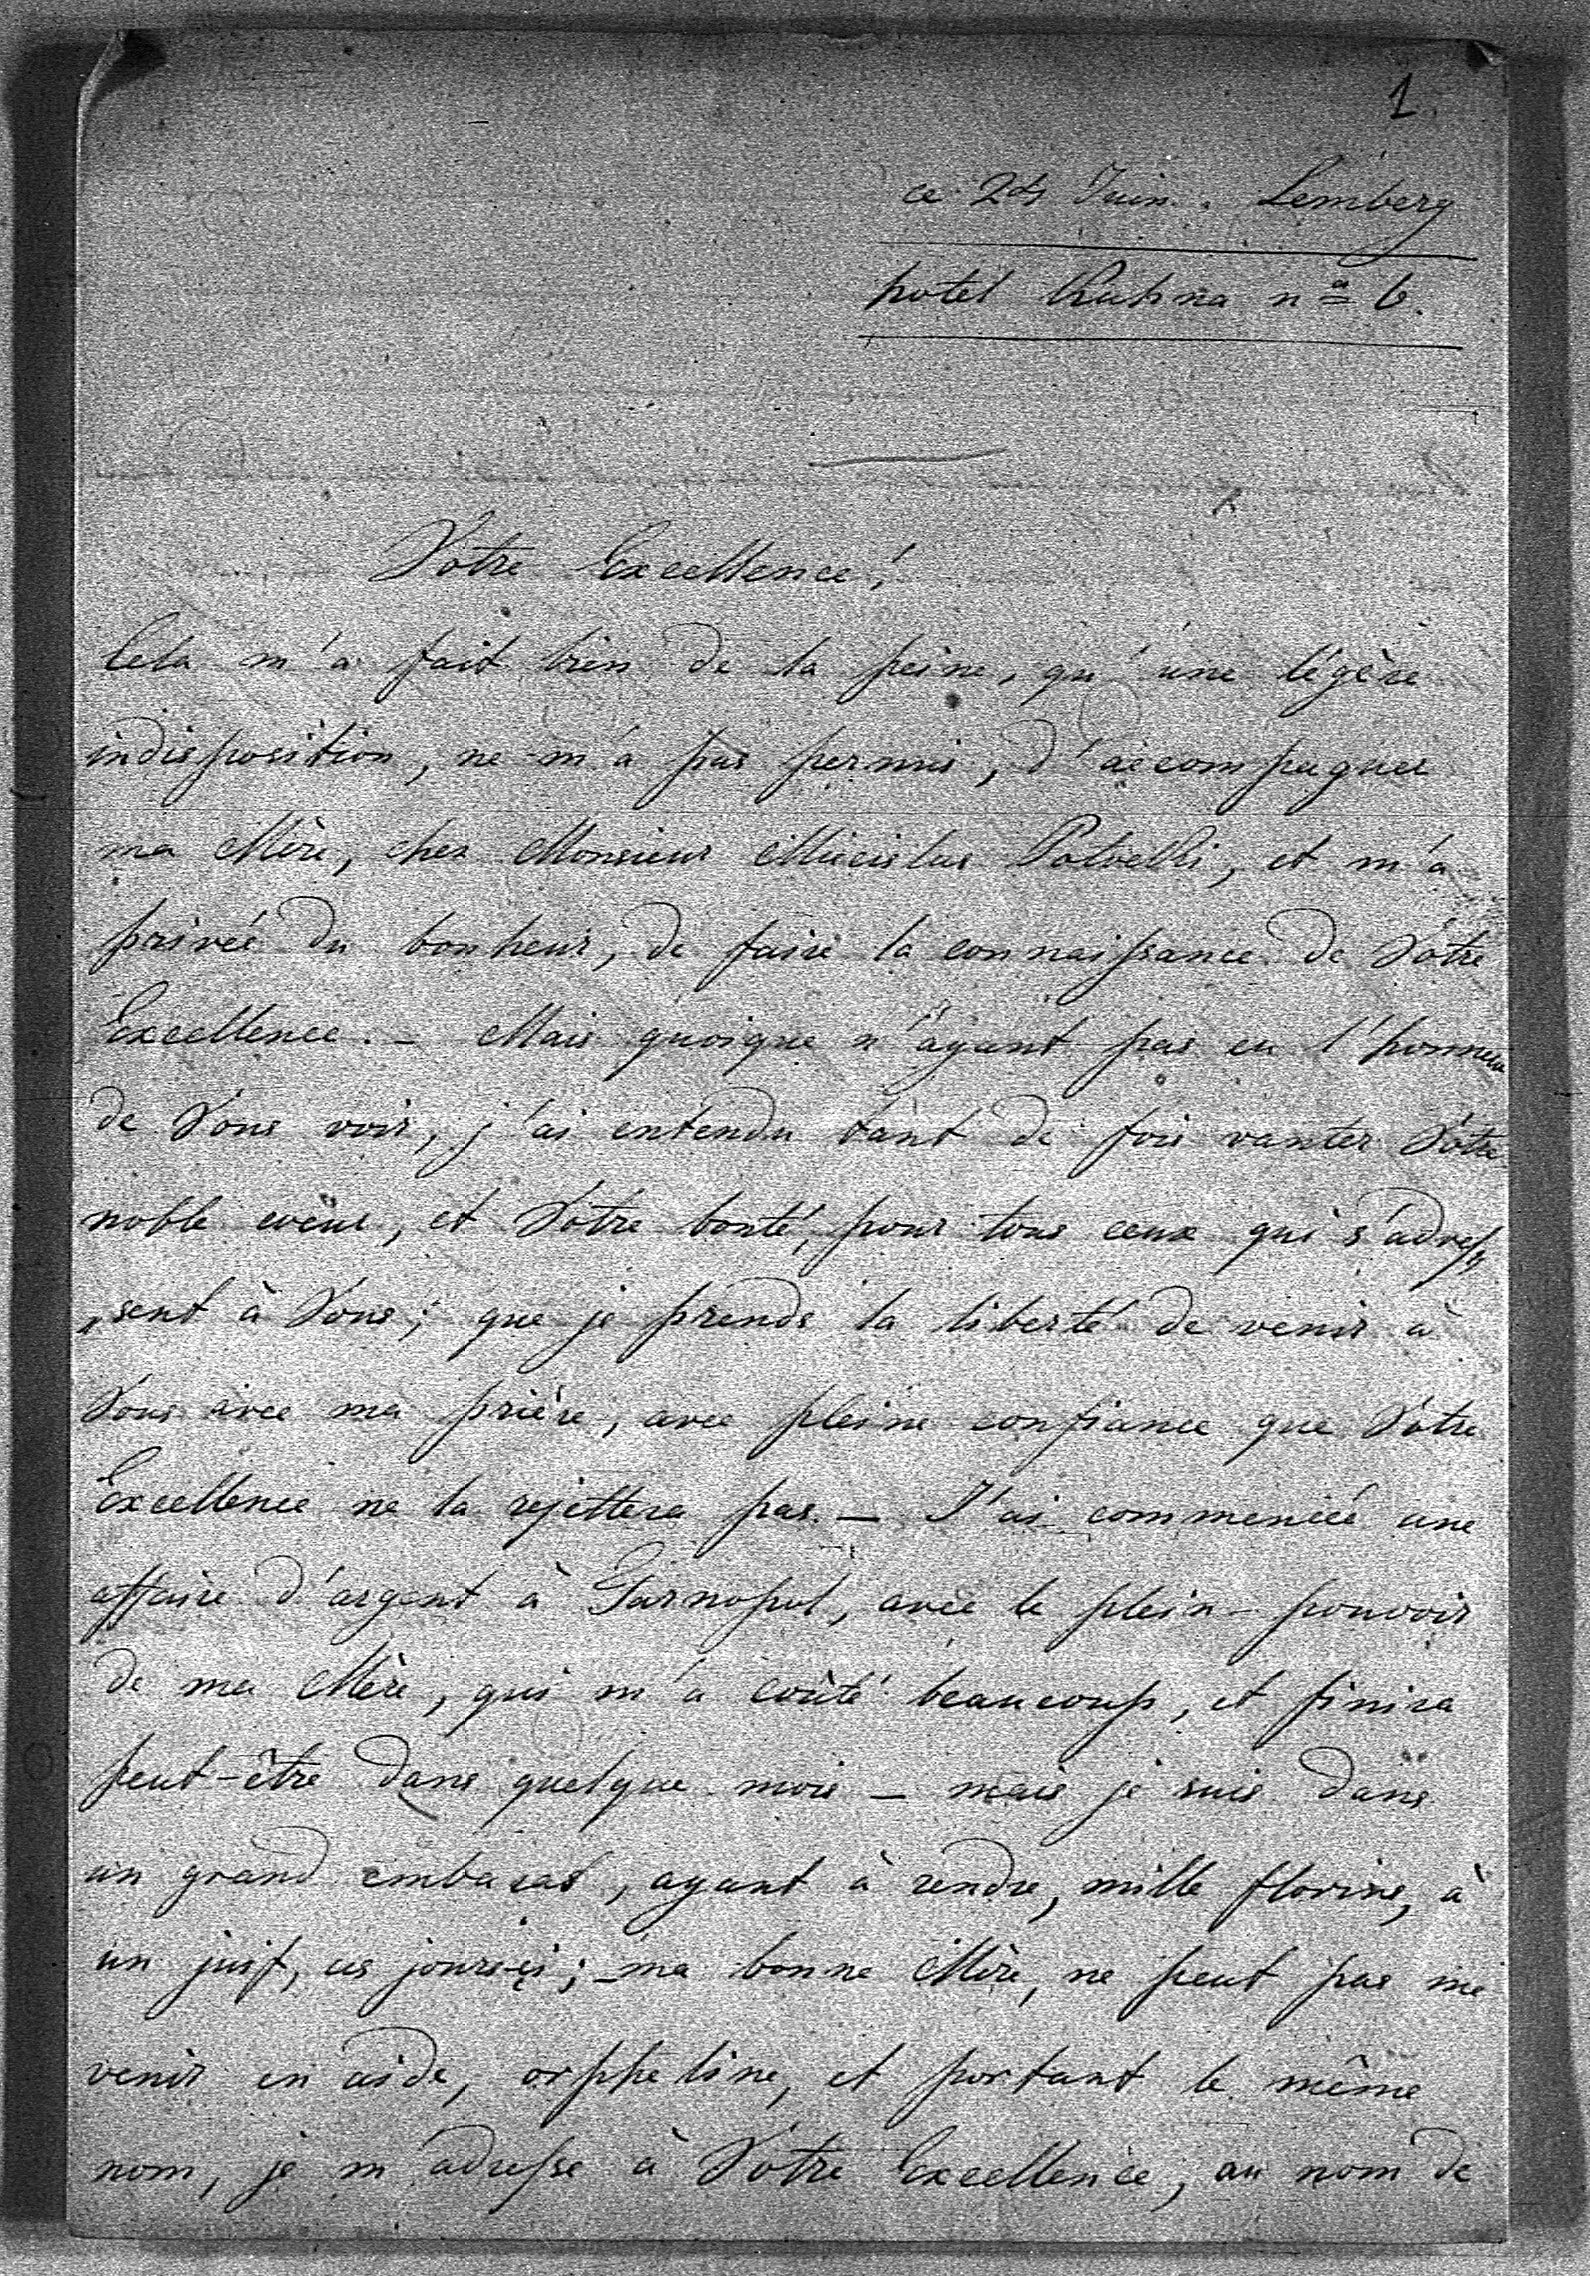 1.
ce 24 Juin. Lemberg
hotel Kuhna nº 6.
Votre Excellence!
Cela m'a fait bien de la peine, qu'une légère
indisposition, ne m'a pas permis, d'accompagner
ma Mère, chez Monsieur Miecislas, et m'a
privée du bonheur, de faire la connaissance de Votre
Excellence. – Mais quoique n'ayant pas eu l'honneur
de Vous voir, j'ai entendu tant de fois vanter Votre
noble coeur, et Votre bonté, pour tous ceux qui s'adres„
„sent à Vous; que je prends la liberté de venir à
Vous avec ma prière, avec pleine confiance que Votre
Excellence ne la rejettera pas. – J'ai commencé une
affaire d'argent à Tarnopol, avec le plein-pouvoir
de ma Mère, qui m'a coûté beaucoup, et finira
peut-être dans quelque mois – mais je suis dans
un grand embaras, ayant à rendre, mille florins, à
un juif, ces jours-ci; – ma bonne Mère, ne peut pas me
venir en aide, orpheline, et portant le même
nom, je m'adresse à Votre Excellence, au nom de